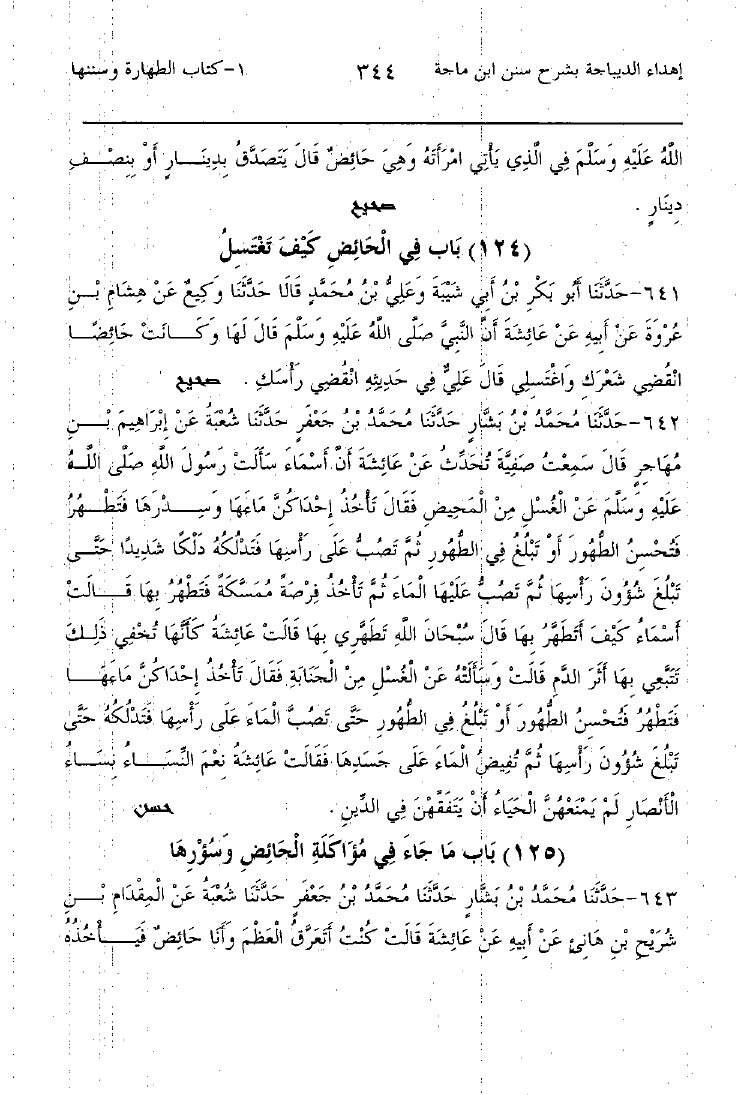 إهداء الديباجة بشرح سنن ابن ماجة ٣٤٤ ١-كتاب الطهارة وسننها
اللَّهُ عَلَيْهِ وَسَلَّمَ فِي الَّذِي يَأْتِي امْرَأَتَهُ وَهِيَ حَائِضٌ قَالَ يَتَصَدَّقُ بِدِينَـــارٍ أَوْ بِنِصْـــفِ
دِينَارٍ . صحيح
(١٢٤) بَاب فِي الْحَائِضِ كَيْفَ تَغْتَسِلُ
٦٤١-حَدَّثَنَا أَبُو بَكْرِ بْنُ أَبِي شَيْبَةَ وَعَلِيُّ بْنُ مُحَمَّدٍ قَالَا حَدَّثَنَا وَكِيعٌ عَنْ هِشَامِ بْنِ
عُرْوَةَ عَنْ أَبِيهِ عَنْ عَائِشَةَ أَنَّ النَّبِيَّ صَلَّى اللَّهُ عَلَيْهِ وَسَلَّمَ قَالَ لَهَا وَكَـــانَتْ حَائِضًـــا
انْقُضِي شَعْرَكِ وَاغْتَسِلِي قَالَ عَلِيٌّ فِي حَدِيثِهِ انْقُضِي رَأْسَكِ . صحيح
٦٤٢-حَدَّثَنَا مُحَمَّدُ بْنُ بَشَّارٍ حَدَّثَنَا مُحَمَّدُ بْنُ جَعْفَرٍ حَدَّثَنَا شُعْبَةُ عَنْ إِبْرَاهِيمَ بْـــنِ
مُهَاجِرٍ قَالَ سَمِعْتُ صَفِيَّةَ تُحَدِّثُ عَنْ عَائِشَةَ أَنَّ أَسْمَاءَ سَأَلَتْ رَسُولَ اللَّهِ صَلَّى اللَّـــهُ
عَلَيْهِ وَسَلَّمَ عَنْ الْغُسْلِ مِنْ الْمَحِيضِ فَقَالَ تَأْخُذُ إِحْدَاكُنَّ مَاءَهَا وَسِـــدْرَهَا فَتَطْـــهُرُ
فَتُحْسِنُ الطُّهُورَ أَوْ تَبْلُغُ فِي الطُّهُورِ ثُمَّ تَصُبُّ عَلَى رَأْسِهَا فَتَدْلُكُهُ دَلْكًا شَدِيدًا حَتَّـــى
تَبْلُغَ شُؤُونَ رَأْسِهَا ثُمَّ تَصُبُّ عَلَيْهَا الْمَاءَ ثُمَّ تَأْخُذُ فِرْصَةً مُمَسَّكَةً فَتَطْهُرُ بِهَا قَـــالَتْ
أَسْمَاءُ كَيْفَ أَتَطَهَّرُ بِهَا قَالَ سُبْحَانَ اللَّهِ تَطَهَّرِي بِهَا قَالَتْ عَائِشَةُ كَأَنَّهَا تُخْفِي ذَلِـــكَ
تَتَبَّعِي بِهَا أَثَرَ الدَّمِ قَالَتْ وَسَأَلَتْهُ عَنْ الْغُسْلِ مِنْ الْجَنَابَةِ فَقَالَ تَأْخُذُ إِحْدَاكُنَّ مَاءَهَـــا
فَتَطْهُرُ فَتُحْسِنُ الطُّهُورَ أَوْ تَبْلُغُ فِي الطُّهُورِ حَتَّى تَصُبَّ الْمَاءَ عَلَى رَأْسِهَا فَتَدْلُكُهُ حَتَّى
تَبْلُغَ شُؤُونَ رَأْسِهَا ثُمَّ تُفِيضُ الْمَاءَ عَلَى جَسَدِهَا فَقَالَتْ عَائِشَةُ نِعْمَ النِّسَـــاءُ نِسَـــاءُ
الْأَنْصَارِ لَمْ يَمْنَعْهُنَّ الْحَيَاءُ أَنْ يَتَفَقَّهْنَ فِي الدِّينِ . حسن
(١٢٥) بَاب مَا جَاءَ فِي مُؤَاكَلَةِ الْحَائِضِ وَسُؤْرِهَا
٦٤٣-حَدَّثَنَا مُحَمَّدُ بْنُ بَشَّارٍ حَدَّثَنَا مُحَمَّدُ بْنُ جَعْفَرٍ حَدَّثَنَا شُعْبَةُ عَنْ الْمِقْدَامِ بْـــنِ
شُرَيْحِ بْنِ هَانِئٍ عَنْ أَبِيهِ عَنْ عَائِشَةَ قَالَتْ كُنْتُ أَتَعَرَّقُ الْعَظْمَ وَأَنَا حَائِضٌ فَيَـــأْخُذُهُ